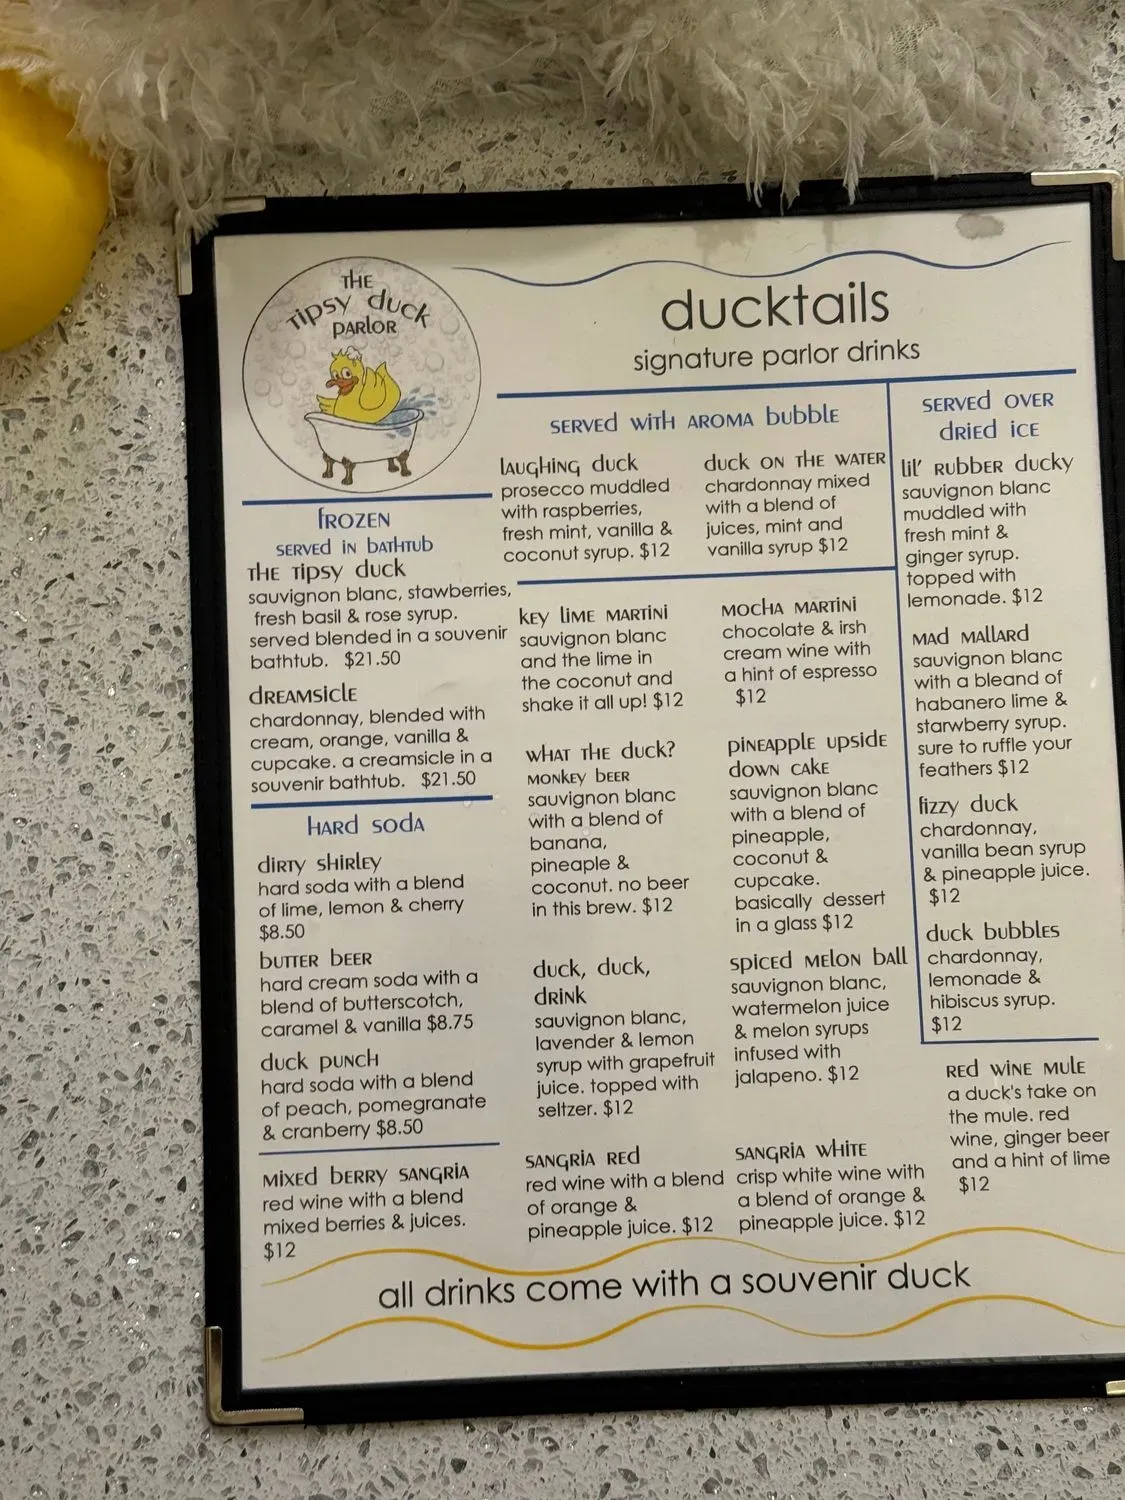 THE
Tipsy duck
PARLOR
ducktails
signature parlor drinks
FROZEN
SERVED IN bATHTub
THE Tipsy duck
sauvignon blanc, stawberries,
fresh basil & rose syrup.
served blended in a souvenir
bathtub. $21.50
dREAMSiclE
chardonnay, blended with
cream, orange, vanilla &
cupcake. a creamsicle in a
souvenir bathtub. $21.50
HARD SOdA
diRTy SHiRlEy
hard soda with a blend
of lime, lemon & cherry
$8.50
buTTER bEER
hard cream soda with a
blend of butterscotch,
caramel & vanilla $8.75
duck puncH
hard soda with a blend
of peach, pomegranate
& cranberry $8.50
MixEd bERRy SANGRiA
red wine with a blend
mixed berries & juices.
$12
SERVED wiTH AROMA bubblE
lAuGHiNG duck
prosecco muddled
with raspberries,
fresh mint, vanilla &
coconut syrup. $12
duck ON THE WATER
chardonnay mixed
with a blend of
juices, mint and
vanilla syrup $12
kEy liME MARTiNi
sauvignon blanc
and the lime in
the coconut and
shake it all up! $12
MOcHA MARTiNi
chocolate & irsh
cream wine with
a hint of espresso
$12
wHAT THE duck?
MONkEy bEER
sauvignon blanc
with a blend of
banana,
pineaple &
coconut. no beer
in this brew. $12
piNEApplE upsidE
dowN cAkE
sauvignon blanc
with a blend of
pineapple,
coconut &
cupcake.
basically dessert
in a glass $12
duck, duck,
dRiNk
sauvignon blanc,
lavender & lemon
syrup with grapefruit
juice. topped with
seltzer. $12
spicEd MElON bAll
sauvignon blanc,
watermelon juice
& melon syrups
infused with
jalapeno. $12
SANGRiA REd
red wine with a blend
of orange &
pineapple juice. $12
SANGRiA wHiTE
crisp white wine with
a blend of orange &
pineapple juice. $12
SERVED OVER
dRiEd icE
lil' RubbER ducky
sauvignon blanc
muddled with
fresh mint &
ginger syrup.
topped with
lemonade. $12
MAd MAllARd
sauvignon blanc
with a bleand of
habanero lime &
starwberry syrup.
sure to ruffle your
feathers $12
fizzy duck
chardonnay,
vanilla bean syrup
& pineapple juice.
$12
duck bubblES
chardonnay,
lemonade &
hibiscus syrup.
$12
REd wiNE MulE
a duck's take on
the mule. red
wine, ginger beer
and a hint of lime
$12
all drinks come with a souvenir duck